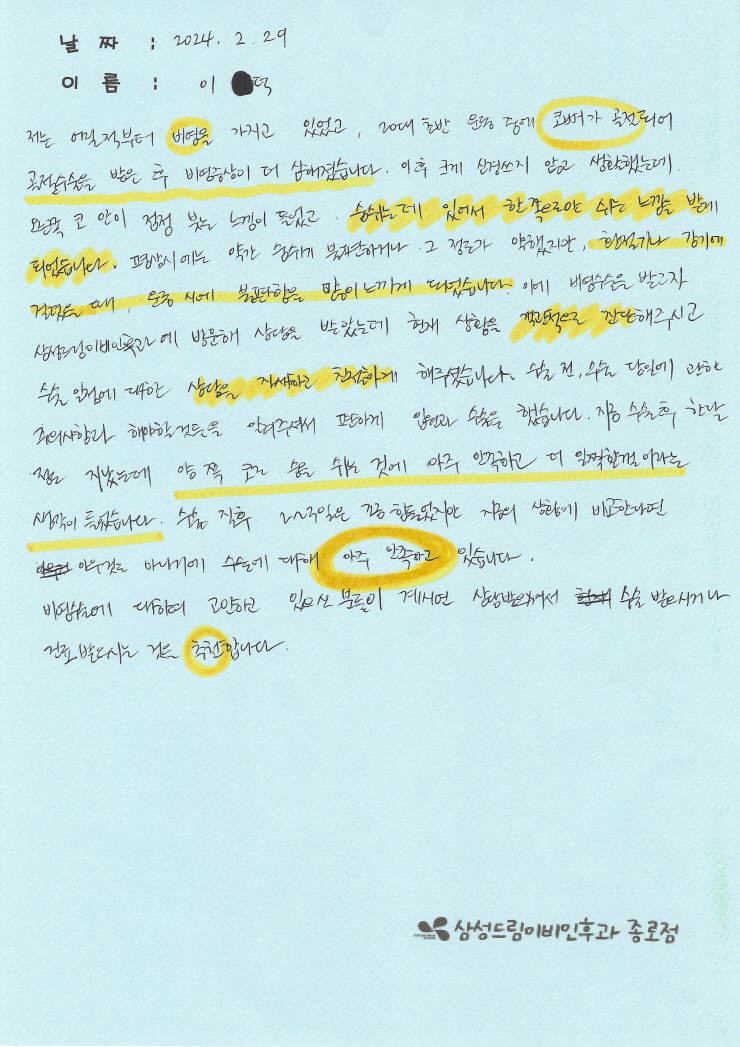 날 짜 : 2024. 2. 29
이 름 : 이 덕
저는 어릴적부터 비염을 가지고 있었고, 20대 초반 운동 중에 코뼈가 골절되어
골절수술을 받은 후 비염증상이 더 심해졌습니다. 이후 크게 신경쓰지 않고 생활했는데,
오른쪽 코 안이 점점 붓는 느낌이 들었고, 숨쉬는데 있어서 한 쪽으로만 쉬는 느낌을 받게
되었습니다. 평상시에는 약간 숨쉬기 불편하거나 그 정도가 약했지만, 환절기나 감기에
걸렸을 때, 운동 시에 불편함을 많이 느끼게 되었습니다. 이에 비염수술을 받고자
삼성드림이비인후과에 방문해 상담을 받았는데 현재 상황을 객관적으로 진단해주시고
수술 일정에 대한 상담을 자세하고 친절하게 해주셨습니다. 수술 전, 수술 당일에 관한
주의사항과 해야할것들을 알려주셔서 편하게 입원과 수술을 했습니다. 지금 수술 후 한달
정도 지났는데 양 쪽 코로 숨을 쉬는 것에 아주 만족하고 더 일찍할걸이라는
생각이 들었습니다. 수술 직후 2~3일은 조금 힘들었지만 지금의 상황에 비교한다면
아무것도 아니기에 수술에 대해 아주 만족하고 있습니다.
비염수술에 대하여 고민하고 있으신 분들이 계시면 상담받으셔서 수술 받으시거나
진료받으시는 것을 추천합니다.
삼성드림이비인후과 종로점